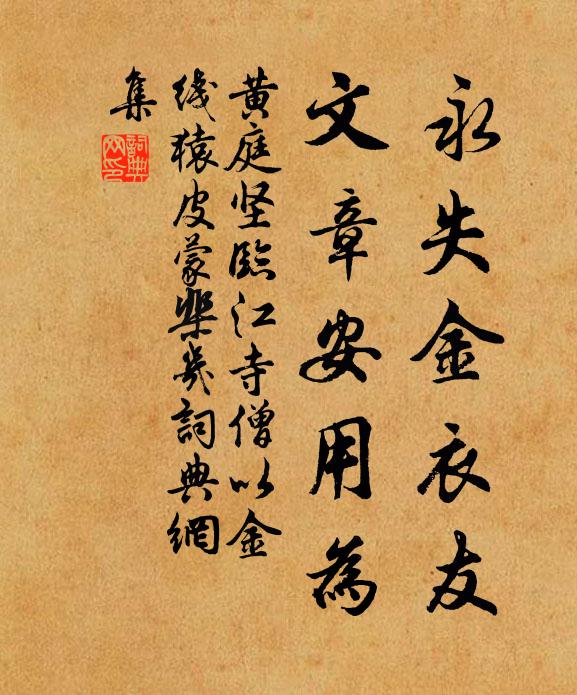 永失金衣友
文章安用為
黄庭坚臨江寺僧以金
线猿皮蒙棐几詞典網
集
詞典网印